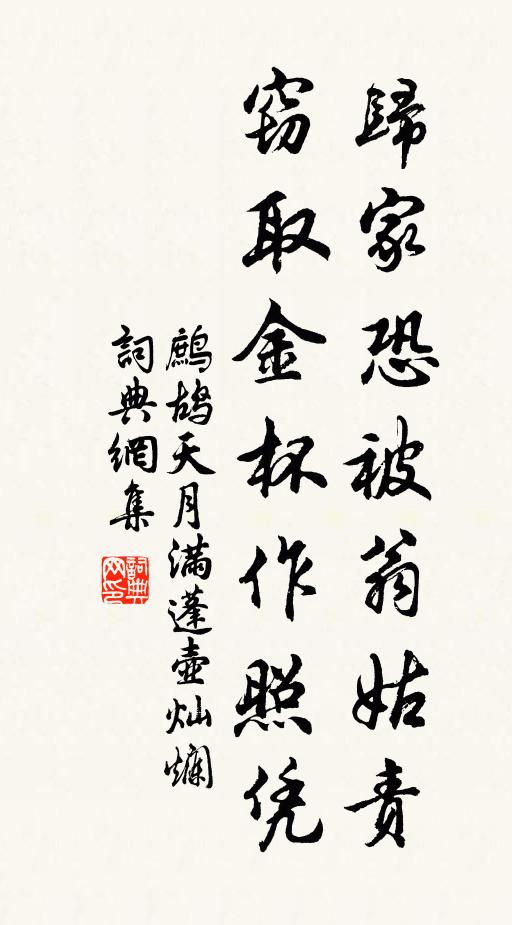 歸家恐被翁姑責
窃取金杯作照凭
鷓鴣天月滿蓬壺灿爛
詞典網集
詞典网印